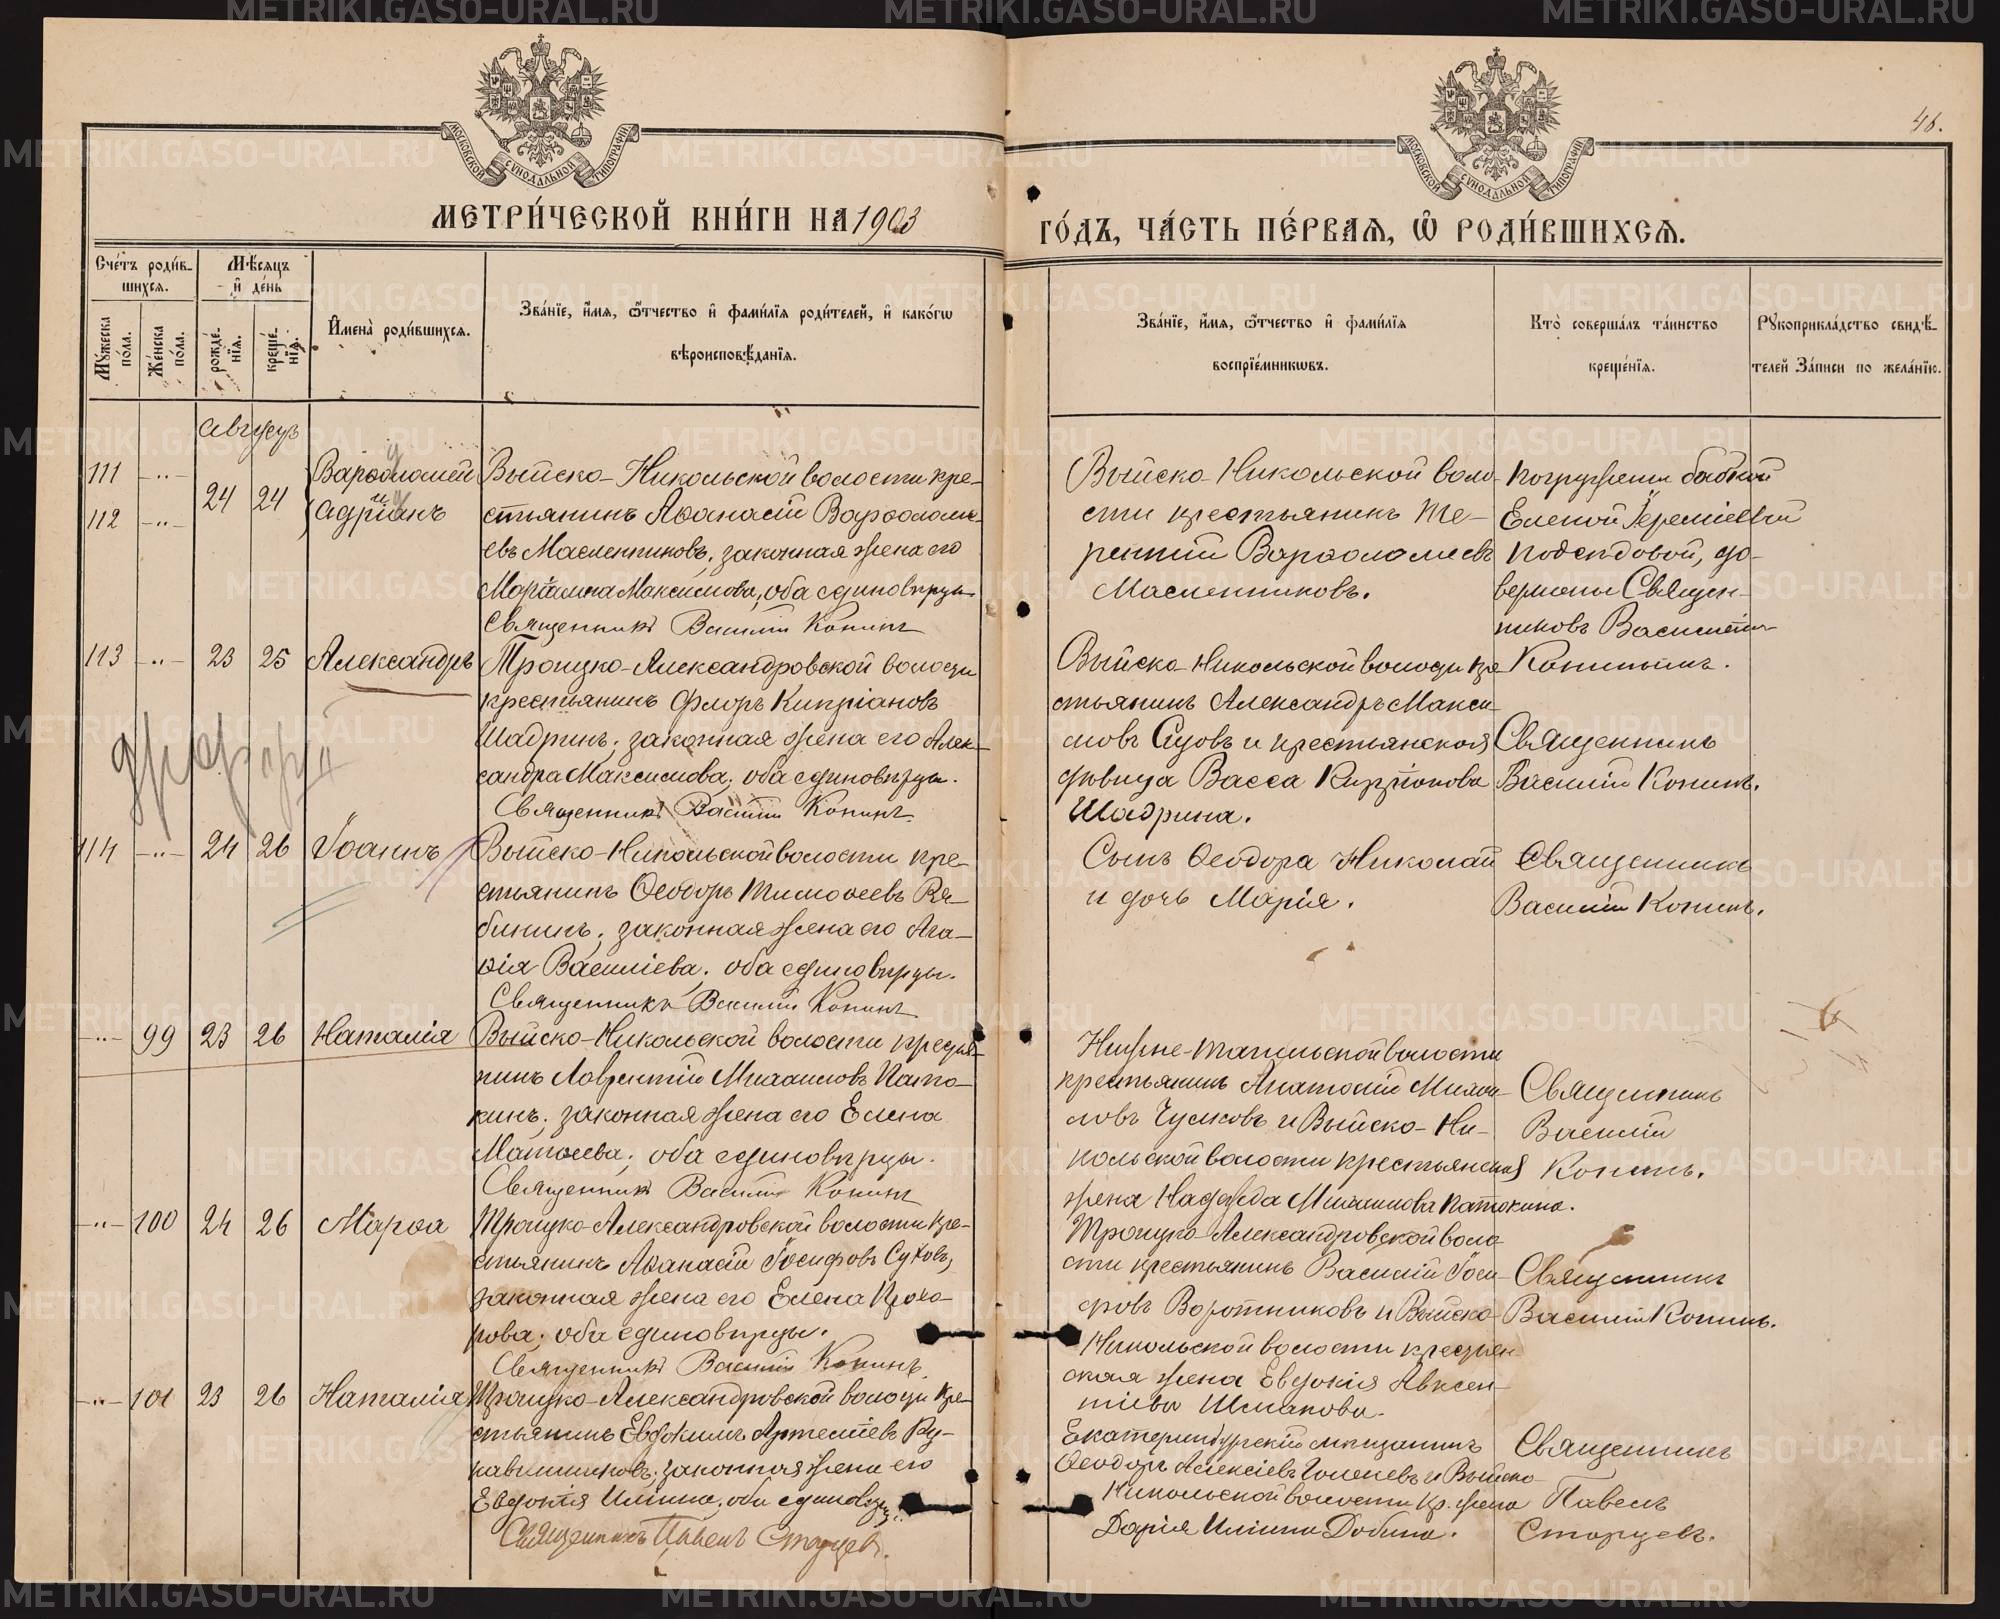 46.
МОСКОВСКОЙ СѴНОДАЛЬНОЙ ТИПОГРАФІИ
МОСКОВСКОЙ СѴНОДАЛЬНОЙ ТИПОГРАФІИ
МЕТРИ́ЧЕСКОЙ КНИ́ГИ НА 1903
ГО́ДЪ, ЧА́СТЬ ПЕ́РВАѦ, Ѡ҆ РОДИ́ВШИХСѦ.
Сче́тъ роди́в-
шихсѧ.
Мꙋ́жеска по́ла.
Же́нска по́ла.
Мѣ́сѧцъ
и҆ де́нь
рожде́-
нїѧ.
креще́-
нїѧ.
И҆мена̀ роди́вшихсѧ.
Зва́нїе, и҆́мѧ, ѻ҆́тчество и҆ фами́лїѧ роди́телей, и҆ како́гѡ
вѣроисповѣ́данїѧ.
Зва́нїе, и҆́мѧ, ѻ҆́тчество и҆ фами́лїѧ
воспрїе́мникѡвъ.
Кто̀ соверша́лъ та́инство
креще́нїѧ.
Рꙋкоприкла́дство свидѣ́-
телей за́писи по жела́нїю.
Августъ
111 -"- 24 24 Варѳоломей
112 -"- и Адріанъ
Выйско-Никольской волости кре-
стьянинъ Аѳанасій Варѳоломе-
евъ Масленниковъ, законная жена его
Маріамна Максимова, оба единовѣрцы.
Священникъ Василій Конинъ
Выйско-Никольской воло-
сти крестьянинъ Те-
рентій Варѳоломеевъ
Масленниковъ.
Погружены бабкой
Еленой Іереміевой
довершены Священ-
никовъ Василіемъ
Кониным.
113 -"- 23 25 Александръ
Троицко-Александровской волости
крестьянинъ Флоръ Кипріановъ
Шадринъ, законная жена его Алек-
сандра Максимова, оба единовѣрцы.
Священникъ Василій Конинъ
Выйско-Никольской волости кре-
стьянинъ Александръ Макси-
мовъ и крестьянская
дѣвица Васса Кипріанова
Шадрина.
Священникъ
Василій Конинъ.
114 -"- 24 26 Іоаннъ
Выйско-Никольской волости кре-
стьянинъ Ѳеодоръ Тимоѳеевъ Ря-
бининъ, законная жена его Ага-
ѳія Василіева, оба единовѣрцы.
Священникъ Василій Конинъ
Сынъ Ѳеодора Николай
и дочь Марія.
Священникъ
Василій Конинъ.
-"- 99 23 26 Наталія
Выйско-Никольской волости крестья-
нинъ Лаврентій Михаиловъ Пато-
кинъ, законная жена его Елена
Матѳеева, оба единовѣрцы.
Священникъ Василій Конинъ
Нижне-Тагильской волости
крестьянинъ Анатолій Михаи-
ловъ Чусковъ и Выйско-Ни-
кольской волости крестьянская
жена Надежда Михаилова Патокина.
Священникъ
Василій
Конинъ.
-"- 100 24 26 Марѳа
Троицко-Александровской волости кре-
стьянинъ Аѳанасій Іосифовъ Суховъ,
законная жена его Елена Прохо-
рова, оба единовѣрцы.
Священникъ Василій Конинъ
Троицко-Александровской воло-
сти крестьянинъ Василій Іоси-
фовъ Воротниковъ и Выйско-
Никольской волости крестьян-
ская жена Евдокія Авксен-
тіева Шмакова.
Священникъ
Василій Конинъ.
-"- 101 23 26 Наталія
Троицко-Александровской волости кре-
стьянинъ Евдокимъ Артеміевъ Ку-
законная жена его
Евдокія Иліина, оба единовѣрцы.
Священникъ Павелъ Старцевъ.
Екатеринбургскій мѣщанинъ
Ѳеодоръ Алексіевъ и Выйско-
Никольской волости кр. жена
Дарія Иліина Добина.
Священникъ
Павелъ
Старцевъ.
METRIKI.GASO-URAL.RU